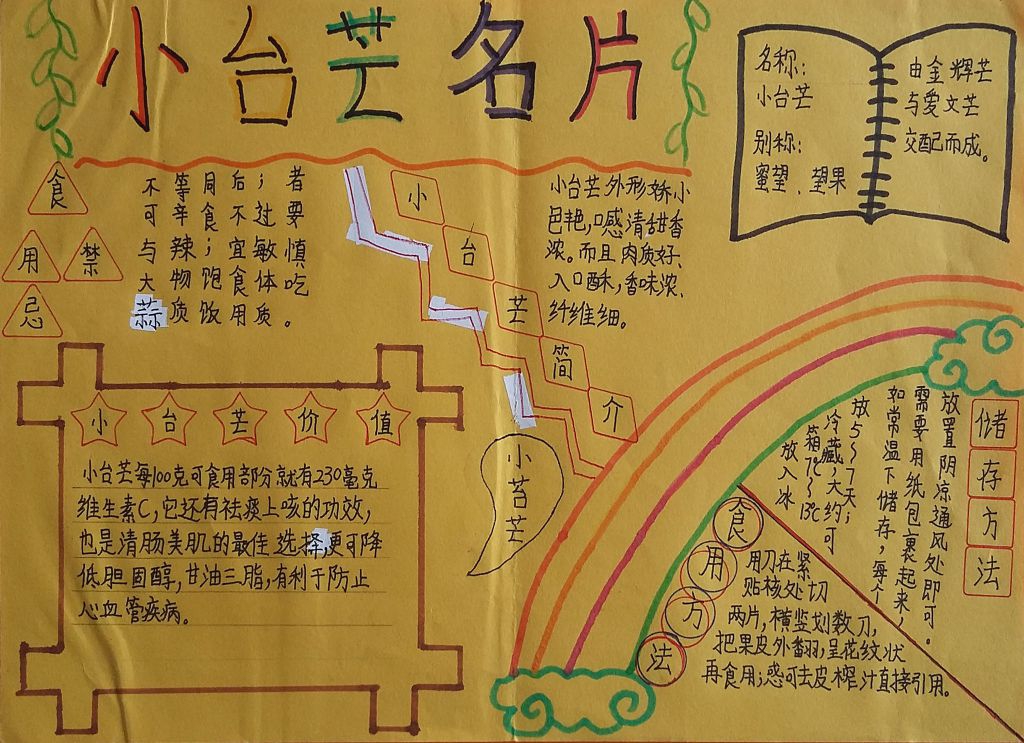 小台芒名片
名称:
小台芒
别称:
蜜望、望果
由金辉芒
与爱文芒
交配而成。
食用禁忌
不可与大蒜
等辛辣物质
同食;饱饭
后不宜食用
;过敏体质
者要慎吃。
小台芒简介
小台芒外形娇小
色艳,口感清甜香
浓。而且肉质好、
入口酥,香味浓、
纤维细。
小台芒价值
小台芒每100克可食用部份就有230毫克
维生素C,它还有祛痰上咳的功效,
也是清肠美肌的最佳选择,更可降
低胆固醇,甘油三脂,有利于防止
心血管疾病。
小苔芒
储存方法
放入冰
箱7℃~13℃
冷藏,大约可
放5~7天;
如常温下储存,每个
需要用纸包裹起来,
放置阴凉通风处即可。
食用方法
用刀在紧
贴核处切
两片,横竖划数刀,
把果皮外翻,呈花纹状
再食用;惑可去皮榨汁直接引用。